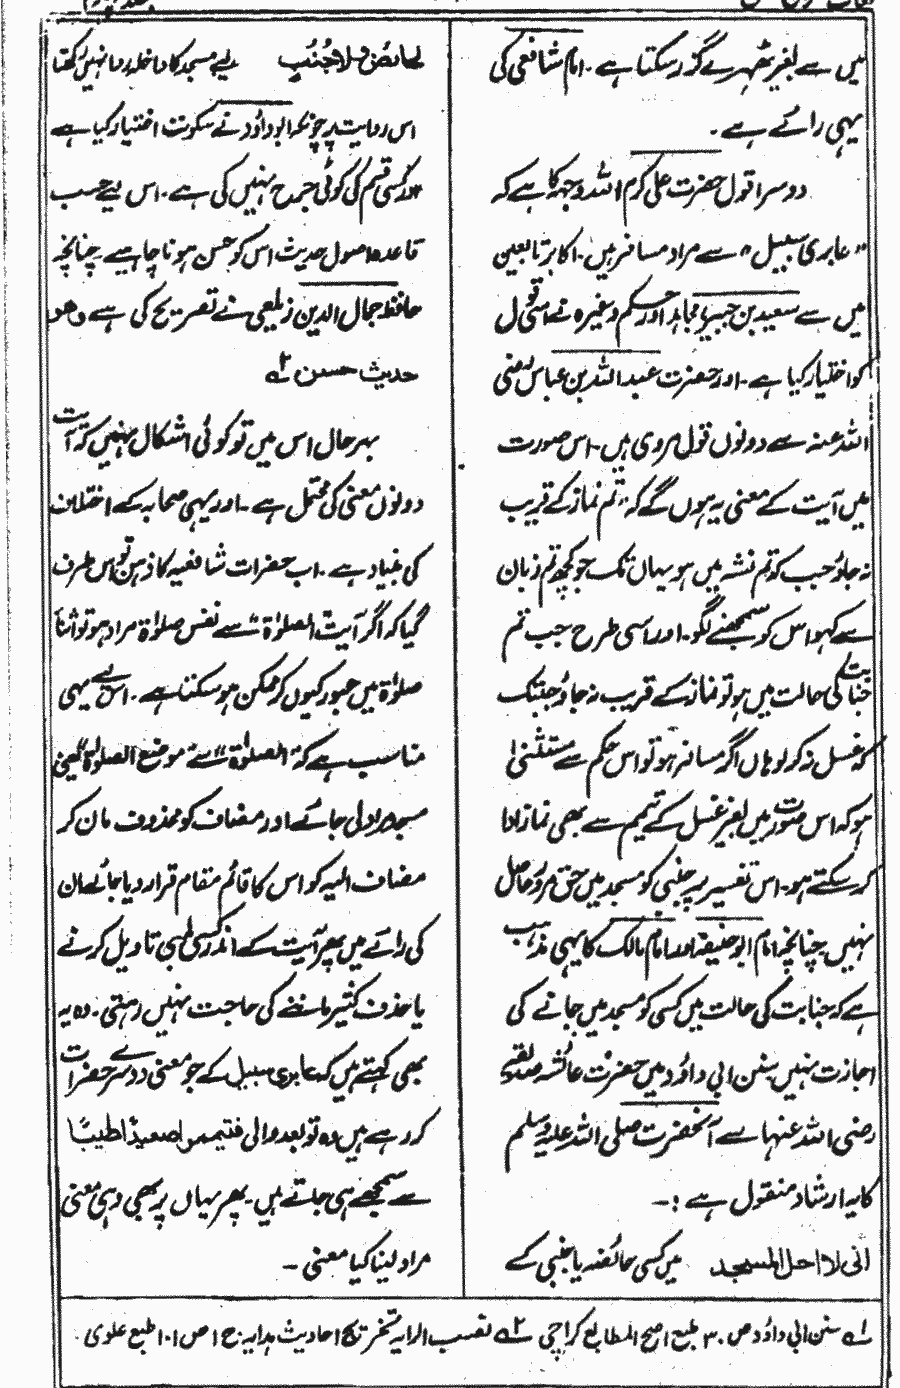 میں سے بغیر ٹھہرے گزر سکتا ہے۔ امام شافعی کی
یہی رائے ہے۔
دوسرا قول حضرت علی کرم اللہ وجہہ کا ہے کہ
"عابری سبیل" سے مراد مسافر ہیں۔ اکابر تابعین
میں سے سعید بن جبیر، مجاہد اور حکم وغیرہ نے اسی قول
کو اختیار کیا ہے۔ اور حضرت عبد اللہ بن عباس رضی
اللہ عنہ سے دونوں قول مروی ہیں۔ اس صورت
میں آیت کے معنی یہ ہوں گے کہ "تم نماز کے قریب
نہ جاؤ جب کہ تم نشہ میں ہو یہاں تک جو کچھ تم زبان
سے کہو اس کو سمجھنے لگو۔ اور اسی طرح جب تم
جنابت کی حالت میں ہو تو نماز کے قریب نہ جاؤ جبتک
کہ غسل نہ کر لو ہاں اگر مسافر ہو تو اس حکم سے مستثنیٰ
ہو کہ اس صورت میں بغیر غسل کے تیمم سے بھی نماز ادا
کر سکتے ہو۔ اس تفسیر پر جنبی کو مسجد میں حق مرور حاصل
نہیں چنانچہ امام ابو حنیفہ اور امام مالک کا یہی مذہب
ہے کہ جنابت کی حالت میں کسی کو مسجد میں جانے کی
اجازت نہیں سنن ابی داؤد میں حضرت عائشہ صدیقہ
رضی اللہ عنہا سے آنحضرت صلی اللہ علیہ وسلم
کا یہ ارشاد منقول ہے :۔
انی لا احل المسجد میں کسی حائضہ یا جنبی کے
لحائض ولا جُنُبٍ لیے مسجد کا داخلہ روا نہیں رکھتا
اس روایت پر چونکہ ابو داؤد نے سکوت اختیار کیا ہے
اور کسی قسم کی کوئی جرح نہیں کی ہے۔ اس لیے حسب
قاعدہ اصول حدیث اس کو حسن ہونا چاہیے۔ چنانچہ
حافظ جمال الدین زیلعی نے تصریح کی ہے وھو
حدیث حسن ۲؎
بہر حال اس میں تو کوئی اشکال نہیں کہ آیت
دونوں معنی کی محتمل ہے۔ اور یہی صحابہ کے اختلاف
کی بنیاد ہے۔ اب حضرات شافعیہ کا ذہن تو اس طرف
گیا کہ اگر آیت "الصلوٰۃ" سے نفس صلوٰۃ مراد ہو تو اثناً
صلوٰۃ میں عبور کیوں کر ممکن ہو سکتا ہے۔ اس لیے یہی
مناسب ہے کہ "الصلوٰۃ" سے موضع الصلوٰۃ یعنی
مسجد مراد لی جائے اور مضاف کو محذوف مان کر
مضاف الیہ کو اس کا قائم مقام قرار دیا جائے ان
کی رائے میں پھر آیت کے اندر کسی لمبی تاویل کرنے
یا حذف کثیر ماننے کی حاجت نہیں رہتی۔ وہ یہ
بھی کہتے ہیں کہ عابری سبیل کے جو معنی دوسرے حضرات
کر رہے ہیں وہ تو بعد والی فتیمموا صعیدًا طیبًا
سے سمجھے ہی جاتے ہیں۔ پھر یہاں پر بھی وہی معنی
مراد لینا کیا معنی۔
۱؎ سنن ابی داؤد ص ۳۰ طبع اصح المطابع کراچی ۲؎ نصب الرایہ تخریج احادیث ہدایہ ج ۱ ص ۱۰۱ طبع علوی